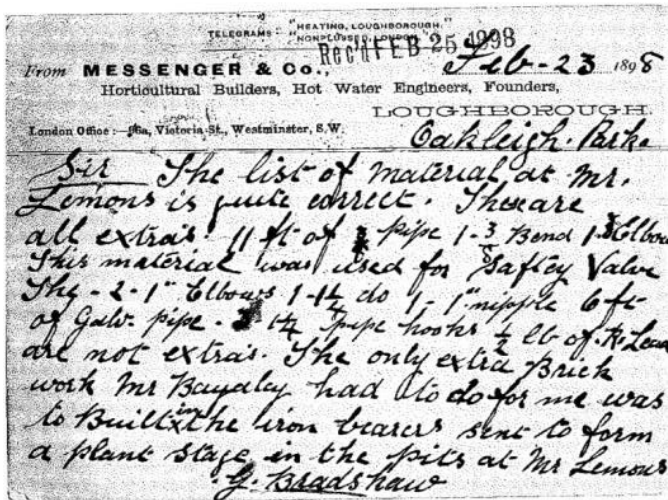 TELEGRAMS: "HEATING, LOUGHBOROUGH."
"NONPLUSSED, LONDON."
Rec'd FEB 25 1898
From MESSENGER & Co., Feb - 23 1898
Horticultural Builders, Hot Water Engineers, Founders,
LOUGHBOROUGH.
London Office:— Victoria St., Westminster, S.W.
Oakleigh. Park.
Sir The list of material at Mr.
Lemons is quite correct. These are
all extra's. 11 ft of pipe 1 - 3/8 Bend 1 3/8 Elbow
This material was used for Saftey Valve
The - 2 - 1" Elbows 1 - 1 1/4 do 1 - 1" nipple 6 ft
of Galv. pipe - 1 1/4 pipe hooks 1/2 lb of R. Lead
are not extra's. The only extra Brick
work Mr Bayaley had to do for me was
to Built in the iron bearers sent to form
a plant stage in the pits at Mr Lemons
G. Bradshaw